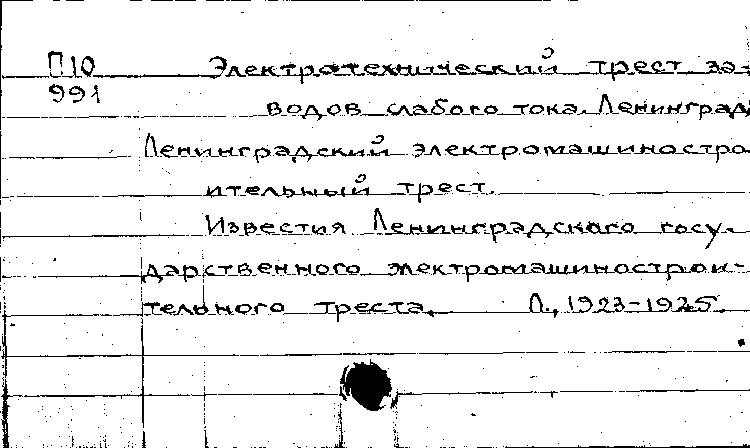 П10 Электротехнический трест за-
991 водов слабого тока. Ленинград
Ленинградский электромашиностро
ительный трест.
Известия Ленинградского госу-
дарственного электромашинострои-
тельного треста. Л., 1923-1925.